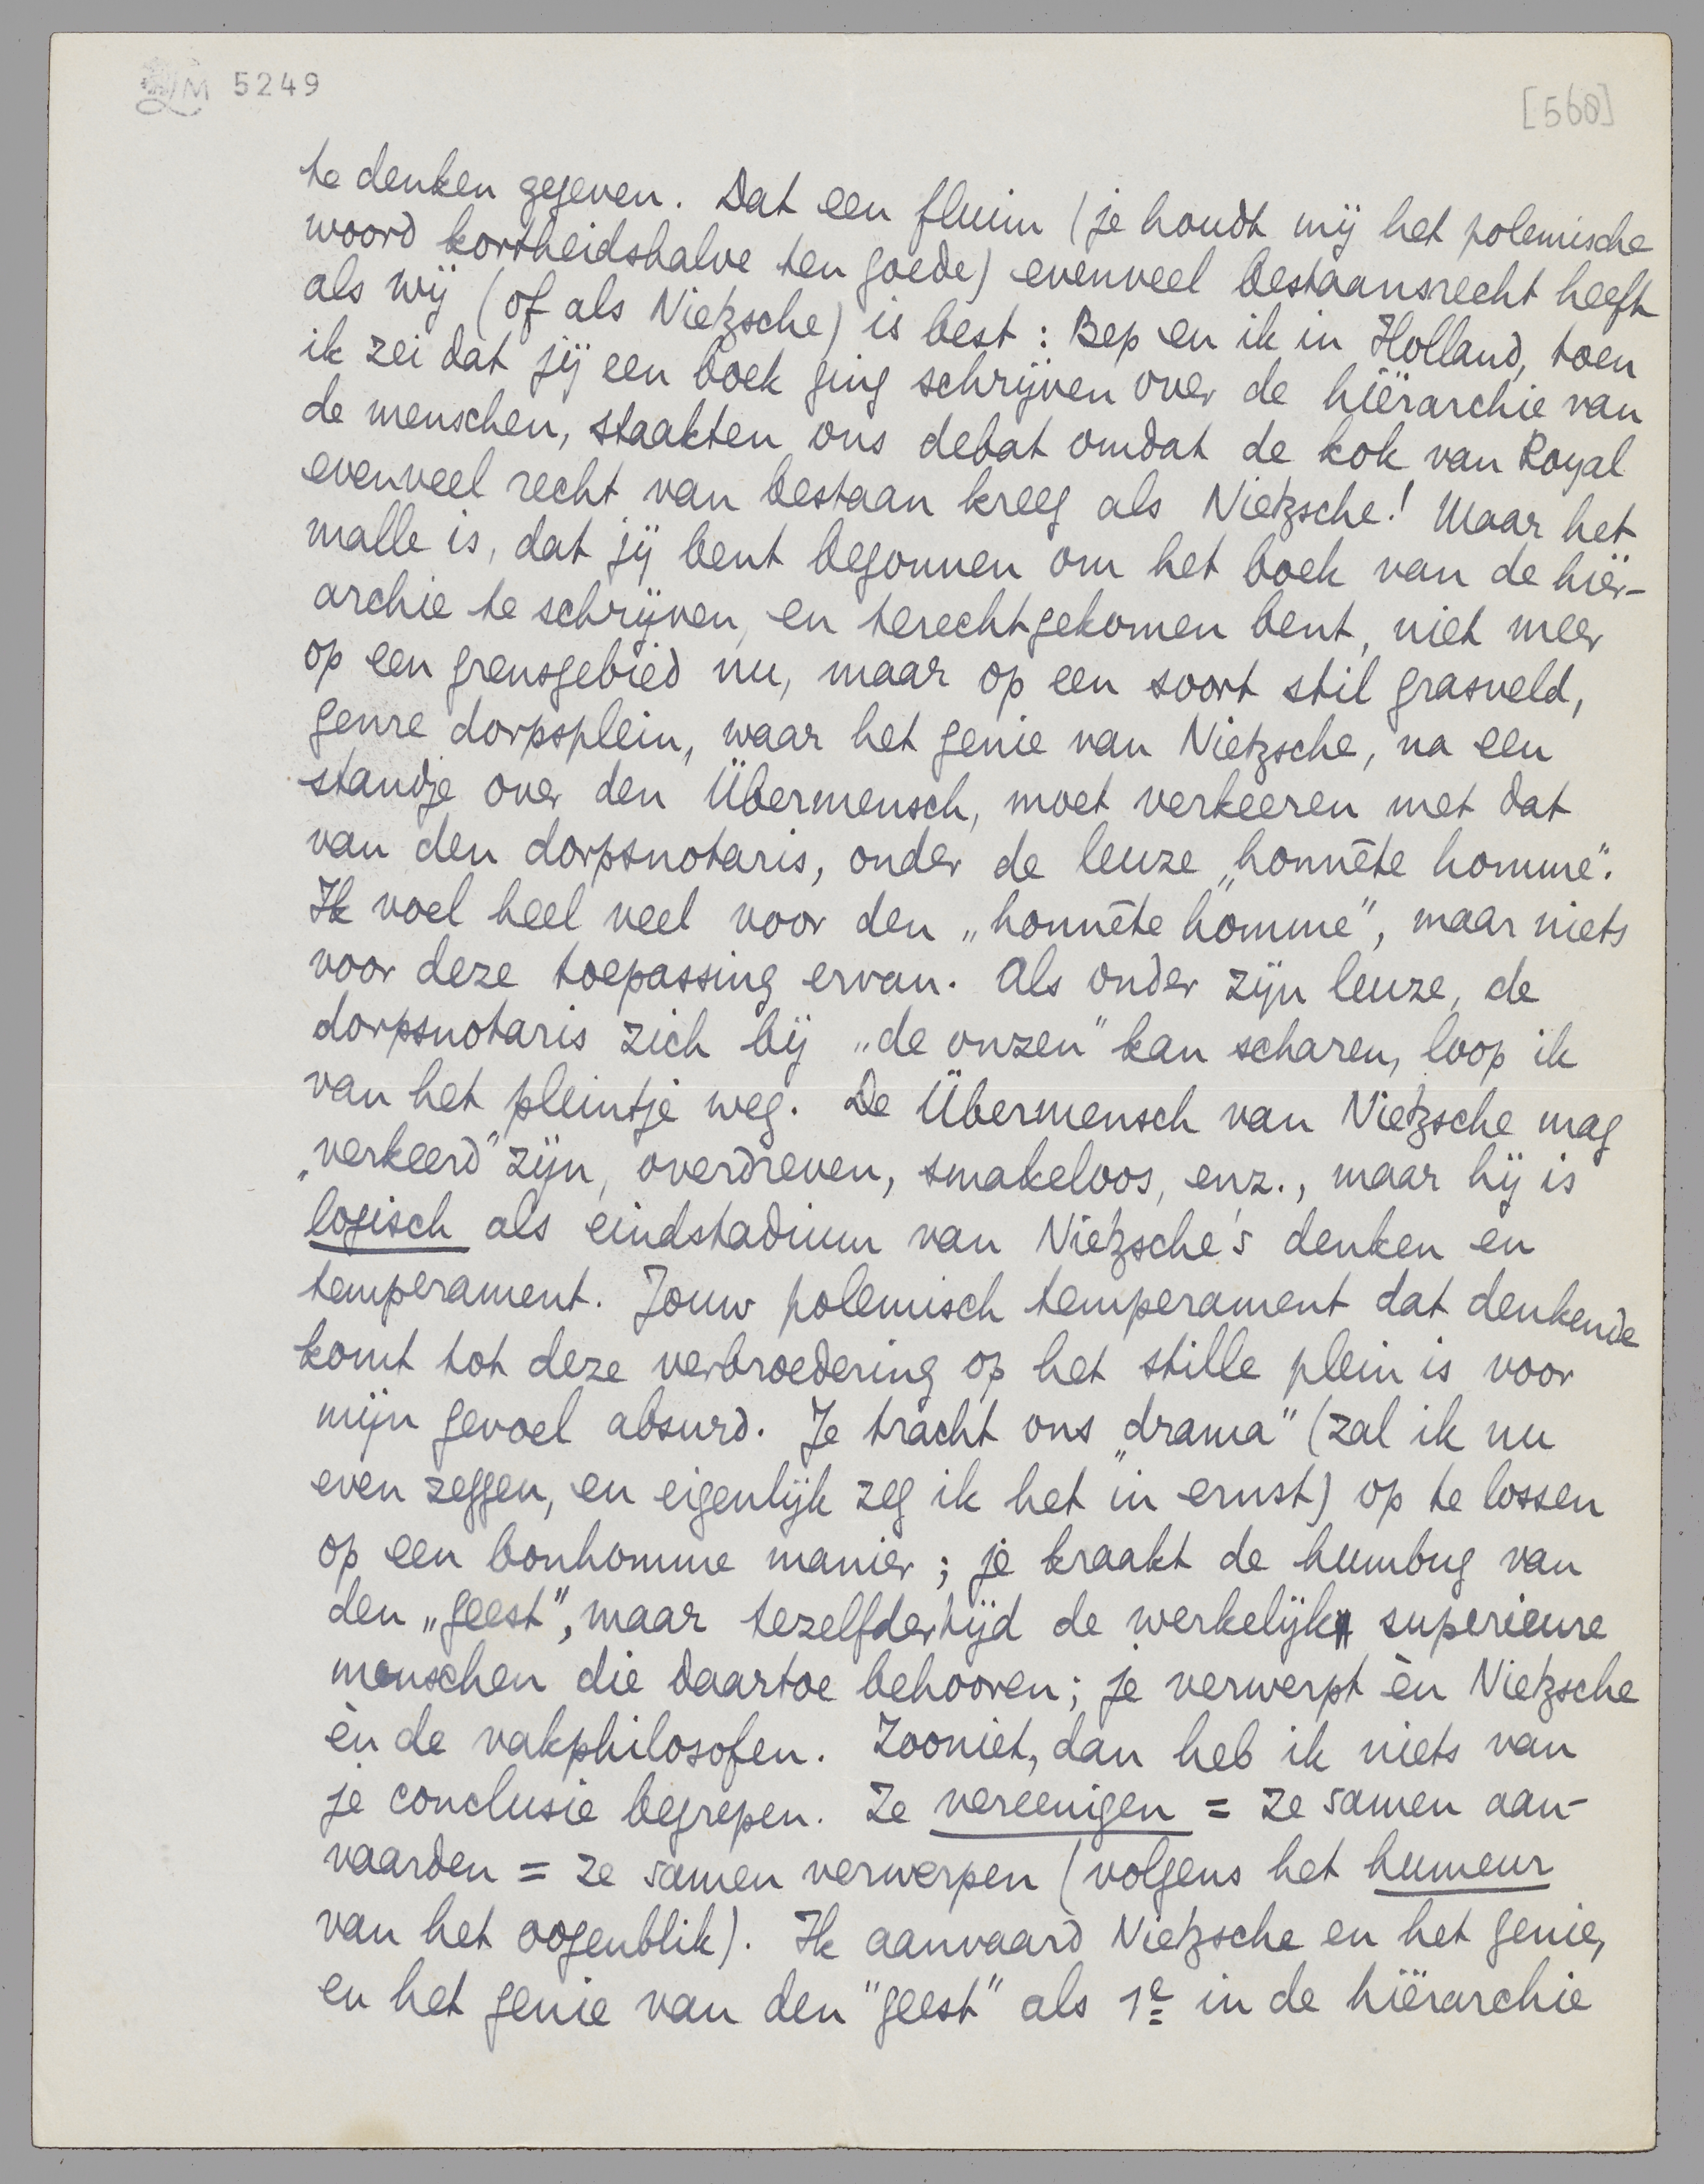 LM 5249
[568]
te denken gegeven. Dat een fluim (je houdt mij het polemische
woord kortheidshalve ten goede) evenveel bestaansrecht heeft
als wij (of als Nietzsche) is best: Bep en ik in Holland, toen
ik zei dat jij een boek ging schrijven over de hiërarchie van
de menschen, staakten ons debat omdat de kok van Royal
evenveel recht van bestaan kreeg als Nietzsche! Maar het
malle is, dat jij bent begonnen om het boek van de hiër-
archie te schrijven, en terechtgekomen bent, niet meer
op een grensgebied nu, maar op een soort stil grasveld,
genre dorpsplein, waar het genie van Nietzsche, na een
standje over den Übermensch, moet verkeeren met dat
van den dorpsnotaris, onder de leuze „honnête homme".
Ik voel heel veel voor den „honnête homme", maar niets
voor deze toepassing ervan. Als onder zijn leuze, de
dorpsnotaris zich bij „de onzen" kan scharen, loop ik
van het pleintje weg. De Übermensch van Nietzsche mag
„verkeerd" zijn, overdreven, smakeloos, enz., maar hij is
logisch als eindstadium van Nietzsche's denken en
temperament. Jouw polemisch temperament dat denkende
komt tot deze verbroedering op het stille plein is voor
mijn gevoel absurd. Je tracht ons „drama" (zal ik nu
even zeggen, en eigenlijk zeg ik het in ernst) op te lossen
op een bonhomme manier; je kraakt de humbug van
den „geest", maar tezelfdertijd de werkelijk superieure
menschen die daartoe behooren; je verwerpt èn Nietzsche
èn de vakphilosofen. Zooniet, dan heb ik niets van
je conclusie begrepen. Ze vereenigen = ze samen aan-
vaarden = ze samen verwerpen (volgens het humeur
van het oogenblik). Ik aanvaard Nietzsche en het genie,
en het genie van den "geest" als 1e in de hiërarchie